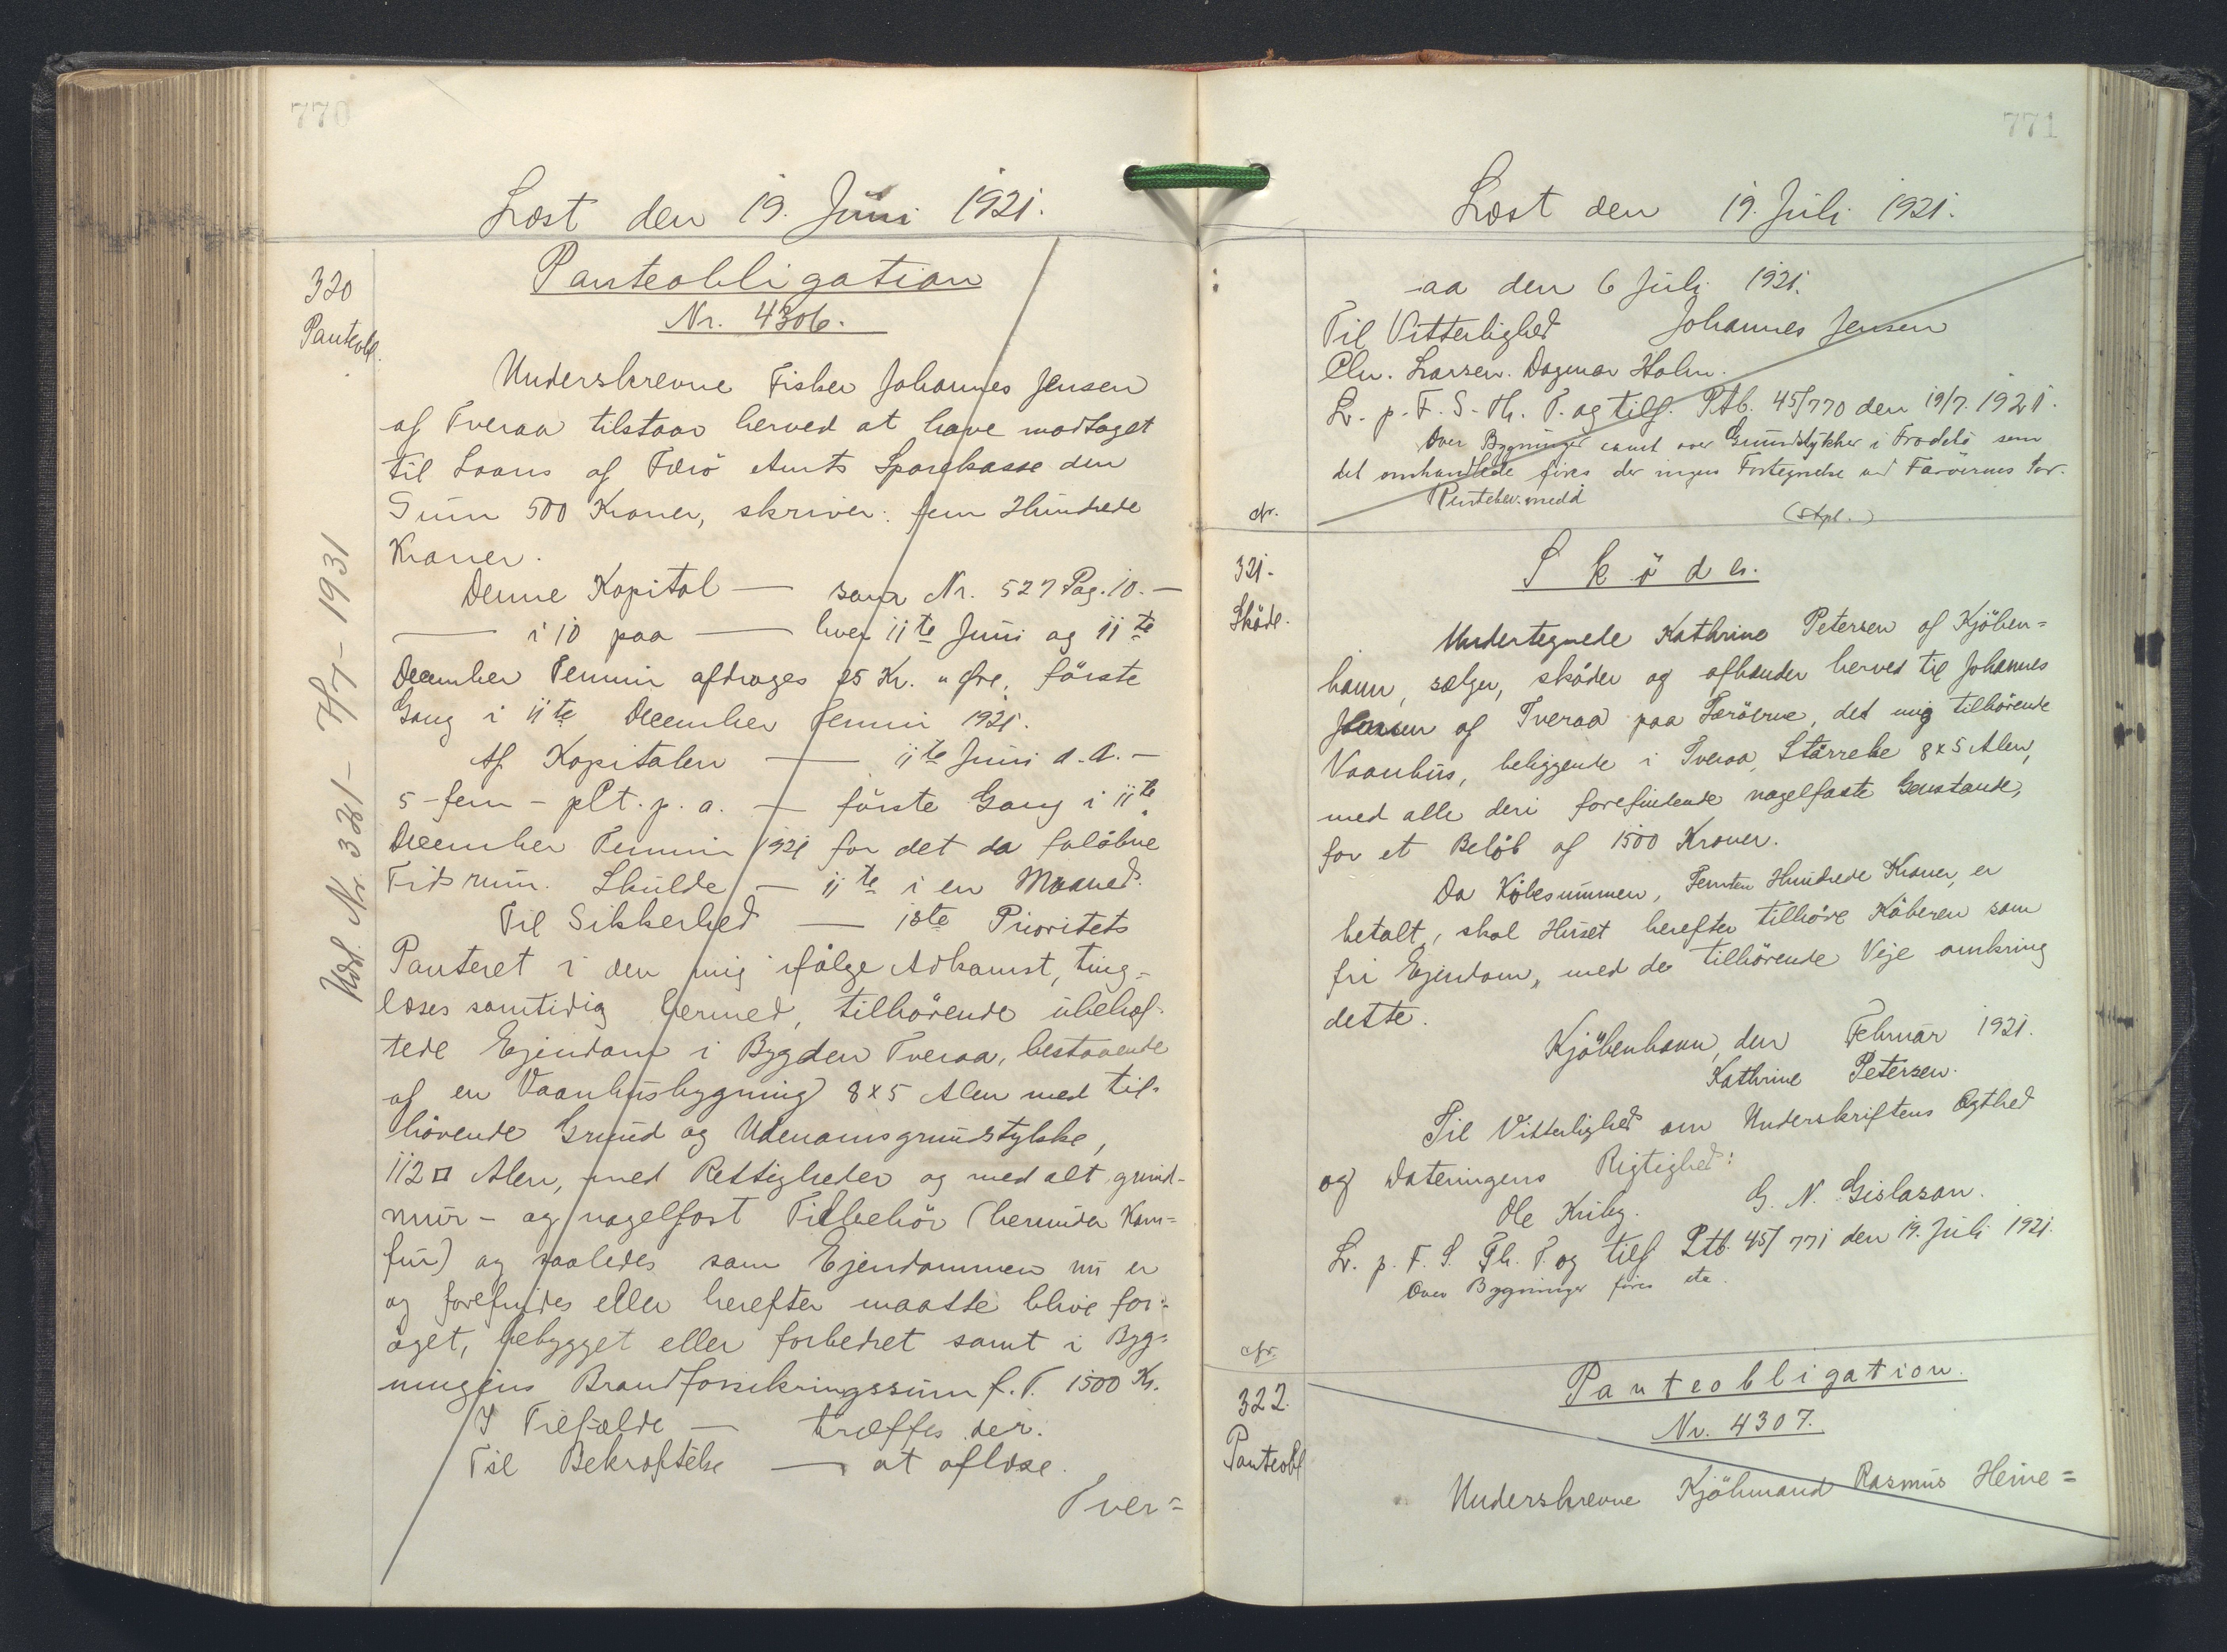 770
Læst den 19. Juni 1921.
320
Panteobl.
Panteobligation
Nr. 4306.
Underskrevne Fisker Johannes Jensen
af Tveraa tilstaar herved at have modtaget
til Laans af Færö Amts Sparekasse den
Sum 500 Kroner, skriver: fem Hundrede
Kroner.
Denne Kapital — som Nr. 527 Pag. 10. —
— i 10 paa — hver 11te Juni og 11te
December Termin afdrages 25 Kr. " Øre, förste
Gang i 11te December Termin 1921.
Af Kapitalen — 11te Juni d. A. —
5 - fem - pCt. p. a. — förste Gang i 11te
December Termin 1921 for det da forlöbne
Tidsrum. Skulde — 11te i en Maaned.
Til Sikkerhed — 1ste Prioritets
Panteret i den mig ifölge Adkomst, ting-
læses samtidig hermed, tilhörende ubehæf-
tede Ejendom i Bygden Tveraa, bestaaende
af en Vaanhusbygning 8 x 5 Alen med til-
hörende Grund og Udenomsgrundstykke,
112 □ Alen, med Rettigheder og med alt grund-
mur- og nagelfast Tilbehör (herunder Kom=
fur) og saaledes som Ejendommen nu er
og forefindes eller herefter maatte blive for=
öget, bebygget eller forbedret samt i Byg=
ningens Brandforsikringssum f. T. 1500 Kr.
I Tilfælde — træffes der.
Til Bekræftelse — at aflæse.
Tver=
Udsl. Nr. 321 - 7/7 - 1931
771
Læst den 19. Juli 1921.
aa den 6 Juli 1921.
Til Vitterlighed Johannes Jensen
Chr. Larsen. Dagmar Holm.
L. p. F. S. Th. P. og tilf. Ptb. 45/770 den 19/7. 1921.
Over Bygninger samt over Grundstykker i Frodebö som
det omhandlede föres der ingen Fortegnelse ved Færöernes Sor-
(Stpl.)
Nr.
321.
Sköde.
Sköde.
Undertegnede Kathrine Petersen af Kjöben=
havn, sælger, sköder og afhænder herved til Johannes
Jensen af Tveraa paa Færöerne, det mig tilhörende
Vaanhus, beliggende i Tveraa, Störrelse 8 x 5 Alen,
med alle deri forefindende nagelfaste Genstande,
for et Belöb af 1500 Kroner.
Da Köbesummen, Femten Hundrede Kroner, er
betalt, skal Huset herefter tilhöre Köberen som
fri Ejendom, med de tilhörende Veje omkring
dette.
Kjöbenhavn, den Februar 1921.
Kathrine Petersen.
Til Vitterlighed om Underskriftens Ægthed
og Dateringens Rigtighed:
Ole Kiiby. G. N. Gislason.
L. p. F. S. Th. P. og tilf. Ptb. 45/771 den 19. Juli 1921.
Over Bygninger föres etc.
Nr.
322.
Panteobl
Panteobligation.
Nr. 4307.
Underskrevne Kjöbmand Rasmus Heine=